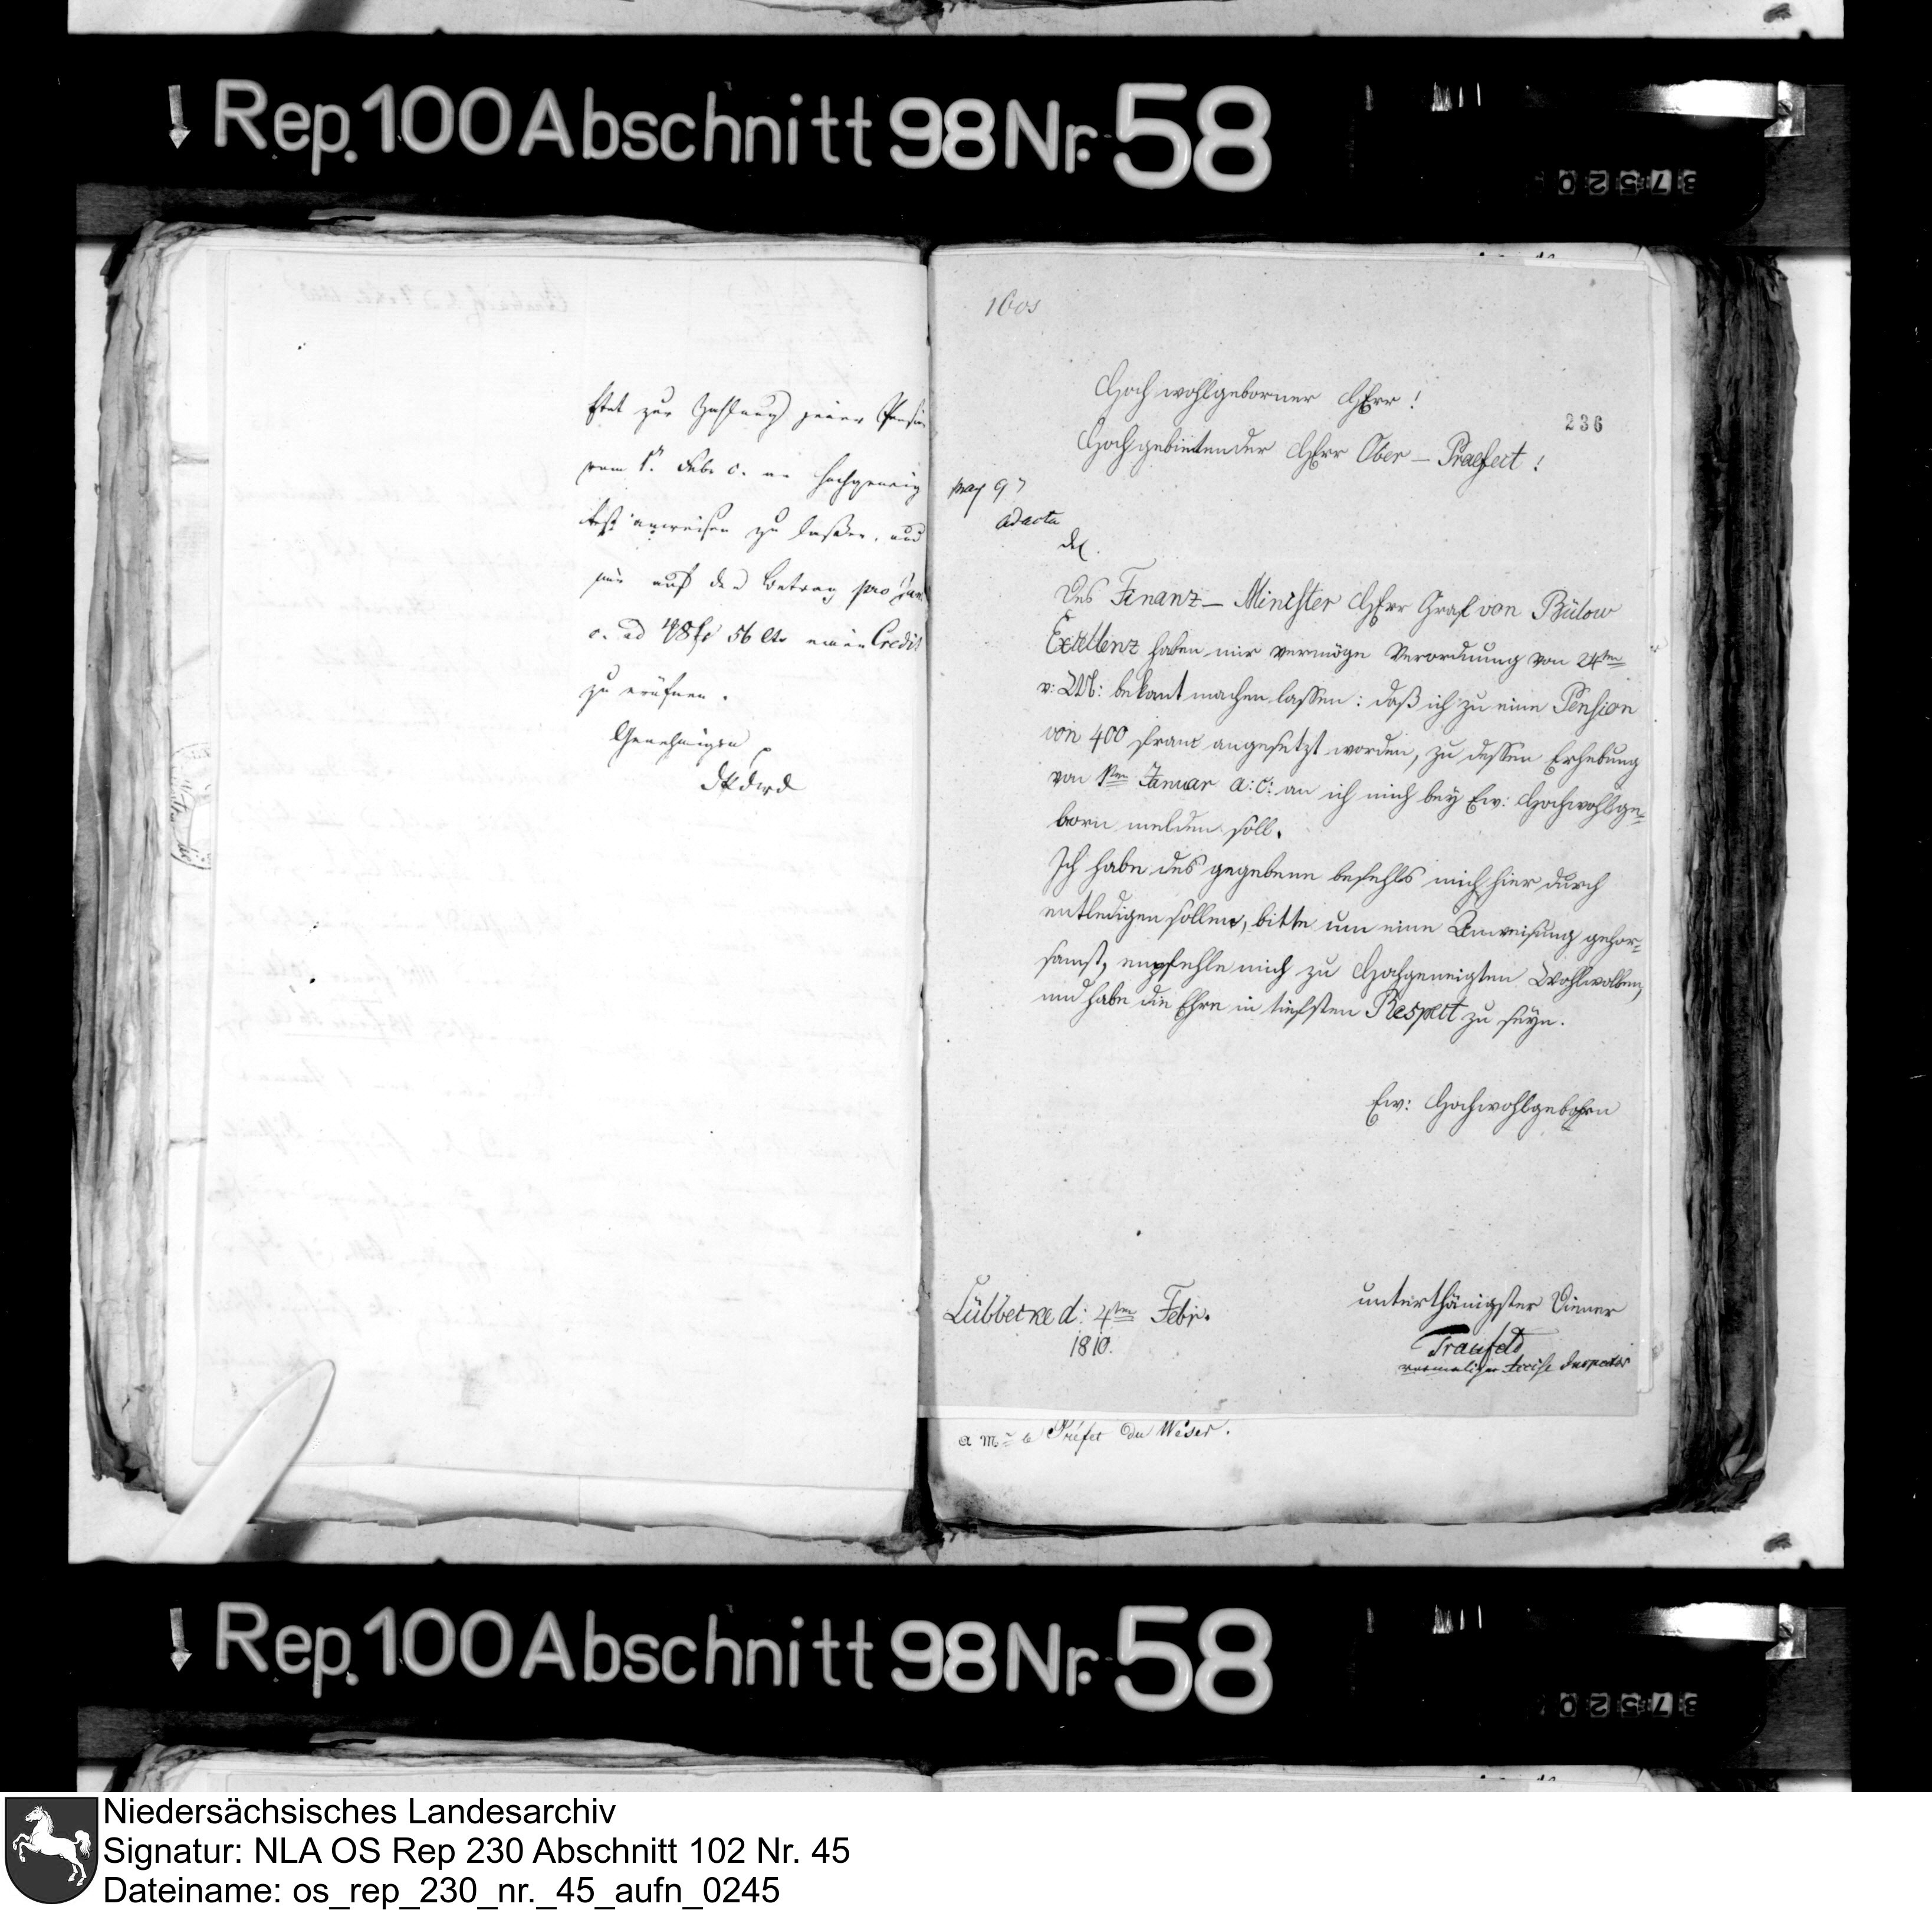 Rep. 100 Abschnitt 98 Nr. 58
37520
Etat zur Zahlung jener Pension
vom 1n. Febr. c. an hochgeneig
test anweisen zu laßen, und
mir auf den Betrag pro Jan.
c. ad 48 fr 56 Cts einen Credit
zu eröfnen.
Genehmigen p
1603
236
Hoch wohlgeborner HErr!
Hochgebietender HErr Ober-Praefect!
ad acta
Des Finanz-Minister HErr Graf von Bülow
Excellenz haben mir vermöge Verordnung von 24ten
v: M: bekant machen lassen: daß ich zu eine Pension
von 400 franc angesetzt worden, zu dessen Erhebung
von 1ten Januar a: c: an ich mich bey Ew: Hochwohlge=
born melden soll.
Ich habe des gegebene befehls mich hier durch
entledigen sollen, bitte um eine Anweisung gehor=
samst, empfehle mich zu Hochgeneigten Wohlwollen,
und habe die Ehre in tiefsten Respect zu seyn.
Ew: Hochwohlgebohrn
Lübbecke d: 4ten Febr.
1810.
unterthänigster Diener
Traufeld
vormaliger Accise Inspector
a Mr le Préfet du Weser.
Rep. 100 Abschnitt 98 Nr. 58
37520
Niedersächsisches Landesarchiv
Signatur: NLA OS Rep 230 Abschnitt 102 Nr. 45
Dateiname: os_rep_230_nr._45_aufn_0245